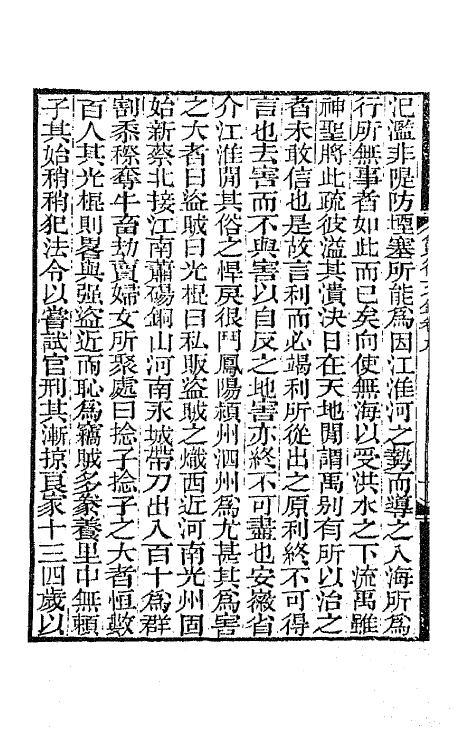 汜濫非隄防堙塞所能為因江淮河之勢而導之入海所為
行所無事者如此而已矣向使無海以受洪水之下流禹雖
神聖將此疏彼溢其潰決日在天地閒謂禹別有所以治之
者未敢信也是故言利而必竭利所從出之原利終不可得
言也去害而不與害以自反之地害亦終不可盡也安徽省
介江淮閒其俗之悍戾很鬥鳳陽潁州泗州為尤甚其為害
之大者曰盜賊曰光棍曰私販盜賊之熾西近河南光州固
始新蔡北接江南蕭碭銅山河南永城帶刀出入百十為群
割黍穄奪牛畜劫賣婦女所聚處曰捻子捻子之大者恒數
百人其光棍則畧與強盜近而恥為竊賊多豢養里中無賴
子其始稍稍犯法令以嘗試官刑其漸掠良家十三四歲以